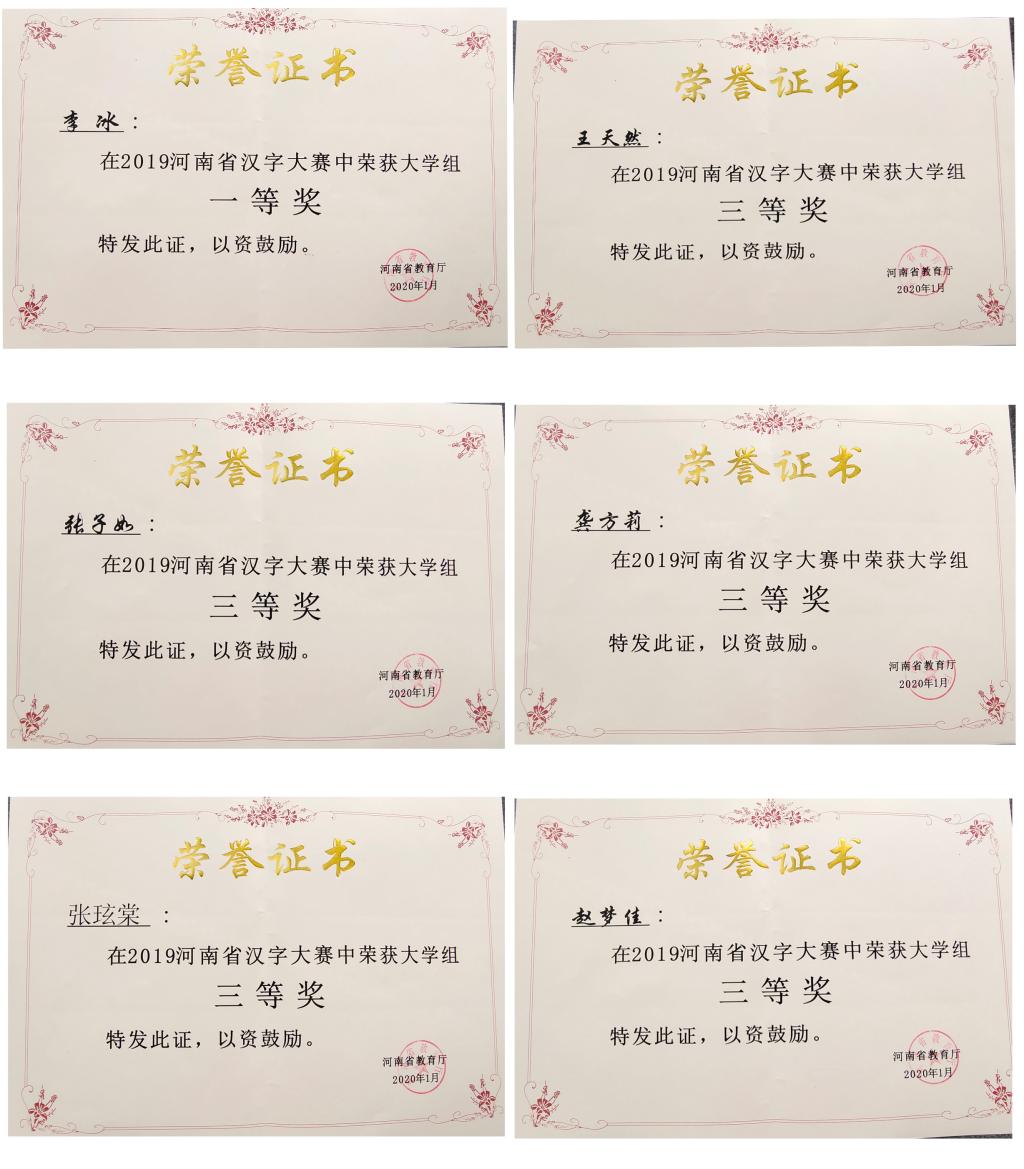 荣誉证书
李冰：
在2019河南省汉字大赛中荣获大学组
一等奖
特发此证，以资鼓励。
河南省教育厅
2020年1月
荣誉证书
王天然：
在2019河南省汉字大赛中荣获大学组
三等奖
特发此证，以资鼓励。
河南省教育厅
2020年1月
荣誉证书
张子如：
在2019河南省汉字大赛中荣获大学组
三等奖
特发此证，以资鼓励。
河南省教育厅
2020年1月
荣誉证书
龚方莉：
在2019河南省汉字大赛中荣获大学组
三等奖
特发此证，以资鼓励。
河南省教育厅
2020年1月
荣誉证书
张玹棠：
在2019河南省汉字大赛中荣获大学组
三等奖
特发此证，以资鼓励。
河南省教育厅
2020年1月
荣誉证书
赵梦佳：
在2019河南省汉字大赛中荣获大学组
三等奖
特发此证，以资鼓励。
河南省教育厅
2020年1月